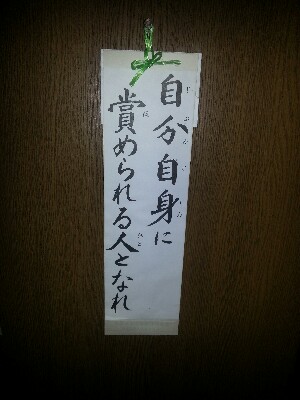 自分自身に
賞められる人となれ